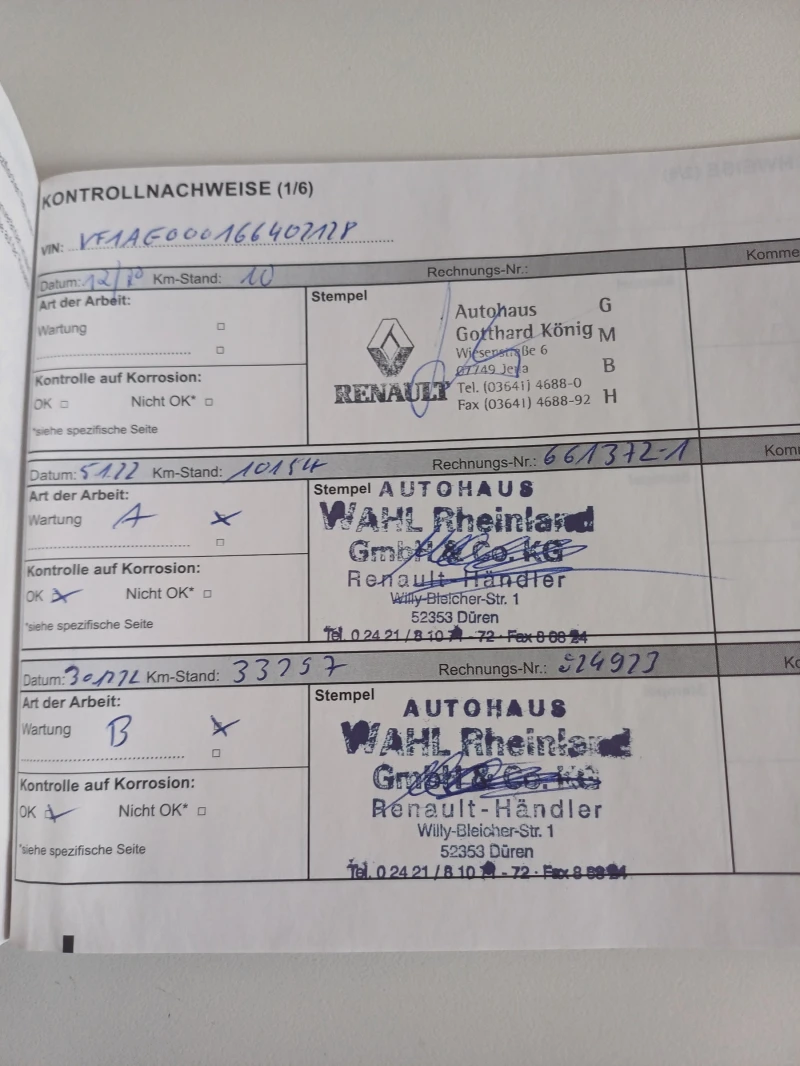 KONTROLLNACHWEISE (1/6)
VIN: VF1AG000166402128
Datum: 12/20 Km-Stand: 10 Rechnungs-Nr.: Komme
Art der Arbeit:
Wartung
Kontrolle auf Korrosion:
OK Nicht OK*
*siehe spezifische Seite
Stempel
RENAULT
Autohaus
Gotthard König
Wiesenstraße 6
07749 Jena
Tel. (03641) 4688-0
Fax (03641) 4688-92
G
M
B
H
Datum: 5.1.22 Km-Stand: 10154 Rechnungs-Nr.: 661372-1 Komm
Art der Arbeit:
Wartung A
Kontrolle auf Korrosion:
OK Nicht OK*
*siehe spezifische Seite
Stempel
AUTOHAUS
WAHL Rheinland
GmbH & Co. KG
Renault-Händler
Willy-Bleicher-Str. 1
52353 Düren
Tel. 0 24 21 / 8 10 - 72 · Fax
Datum: Km-Stand: 33257 Rechnungs-Nr.: Ko
Art der Arbeit:
Wartung B
Kontrolle auf Korrosion:
OK Nicht OK*
*siehe spezifische Seite
Stempel
AUTOHAUS
WAHL Rheinland
GmbH & Co. KG
Renault-Händler
Willy-Bleicher-Str. 1
52353 Düren
Tel. 0 24 21 / 8 10 - 72 · Fax